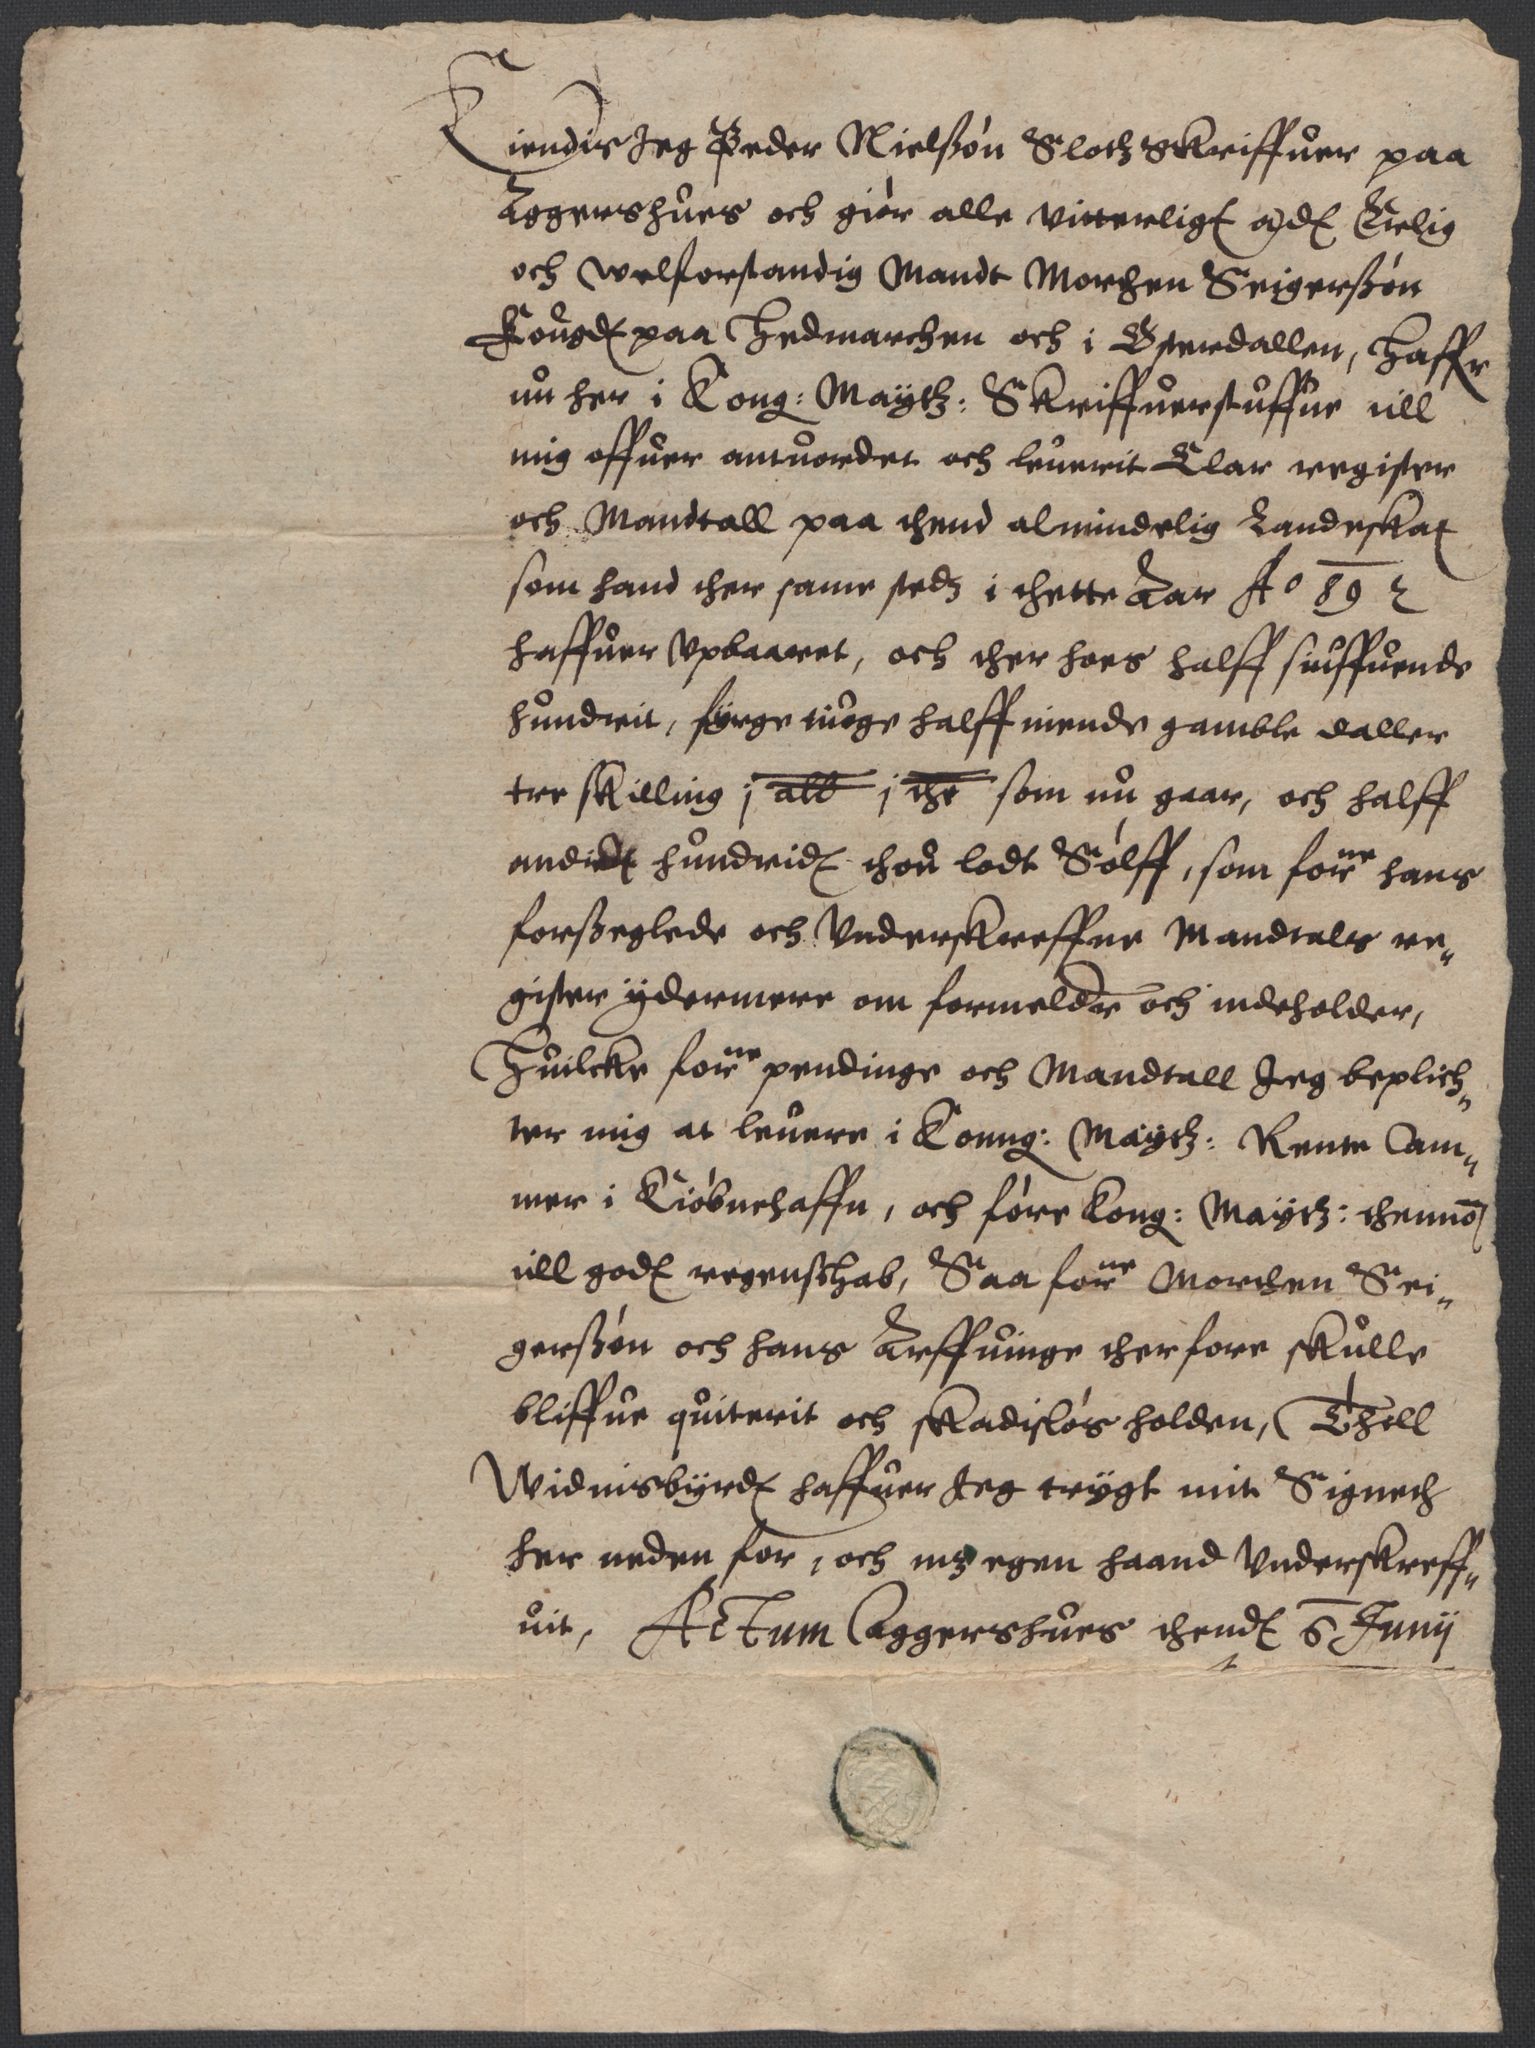 Kiendis Jeg Peder Nielßøn Slotz Skriffuer paa
Aggershues och giør alle vitterligt att Erlig
och welforstandig Mandt Morthen Seigerßøn
Fougdt paa Hedmarchen och i Østerdallen, Haffr
nu her i Kong: Maytz: Skriffuerstuffue till
mig offuer antuordet och leuerit Clar register
och Mandtall paa thend almindelig Landeskat
som hand ther same stedz i thette Aar Ao 89
haffuer Vpbaaret, och ther hoes halff siuffuende
hundrit, fyrge tiuge halff niende gamble daller
tre skilling j alb j the som nu gaar, och halff
andidt hundridt thou lodt Sølff, som forne hans
forßeglede och Vnderskreffne Mandtals re„
gister ydermere om formelder och indeholder,
Huilcke forne pendinge och Mandtall Jeg beplich„
ter mig at leuere i Konng: Maytz: Rente Cam„
mer i Kiøbnehaffn, och føre Kong: Maytz: thennom
till godt regenschab, Saa forne Morthen Sei„
gerßøn och hans Arffuinge therfore skulle
bliffue quiterit och skadisløs holden, Thill
Widnisbyrdt haffuer Jeg trygt mit Signeth
her neden for, och mz egen haand Vnderskreff„
uit, Actum Aggershues thendt 6 Junij